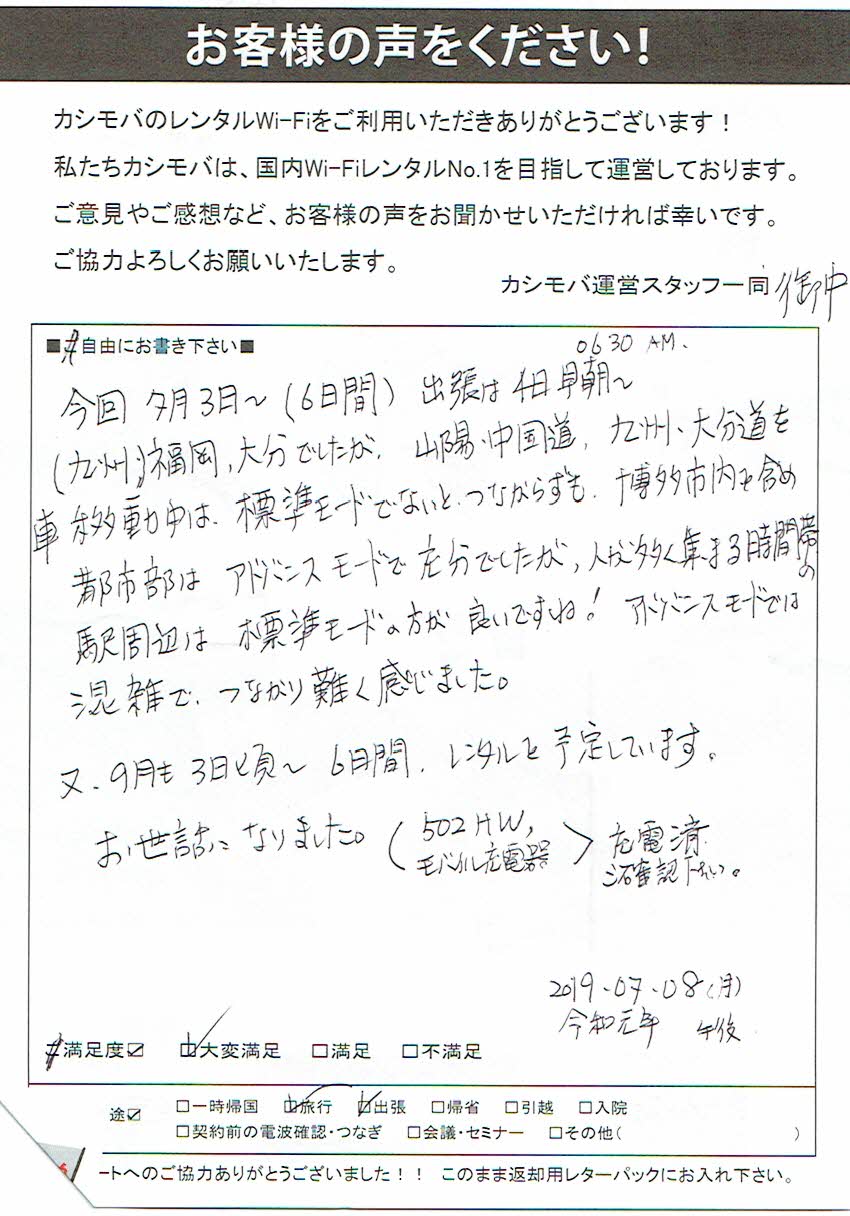 お客様の声をください!
カシモバのレンタルWi-Fiをご利用いただきありがとうございます！
私たちカシモバは、国内Wi-FiレンタルNo.1を目指して運営しております。
ご意見やご感想など、お客様の声をお聞かせいただければ幸いです。
ご協力よろしくお願いいたします。
カシモバ運営スタッフ一同 御中
■自由にお書き下さい■ 0630 AM.
今回 7月3日～(6日間) 出張は 早朝～
(九州)福岡,大分でしたが、山陽・中国道,九州・大分道を
車移動中は、標準モードでないと、つながらずも、博多市内を含め
都市部は アドバンスモードで充分でしたが,人が多く集まる時間帯の
駅周辺は 標準モードの方が 良いですね! アドバンスモードでは
混雑で、つながり難く感じました。
又、9月も 3日頃～ 6日間、レンタルを予定しています。
お世話になりました。(502HW,
モバイル充電器 > 充電済
2019.07.08(月)
令和元年 午後
満足度☑ □大変満足 □満足 □不満足
途☑ □一時帰国 □旅行 □出張 □帰省 □引越 □入院
□契約前の電波確認・つなぎ □会議・セミナー □その他( )
ートへのご協力ありがとうございました！！ このまま返却用レターパックにお入れ下さい。